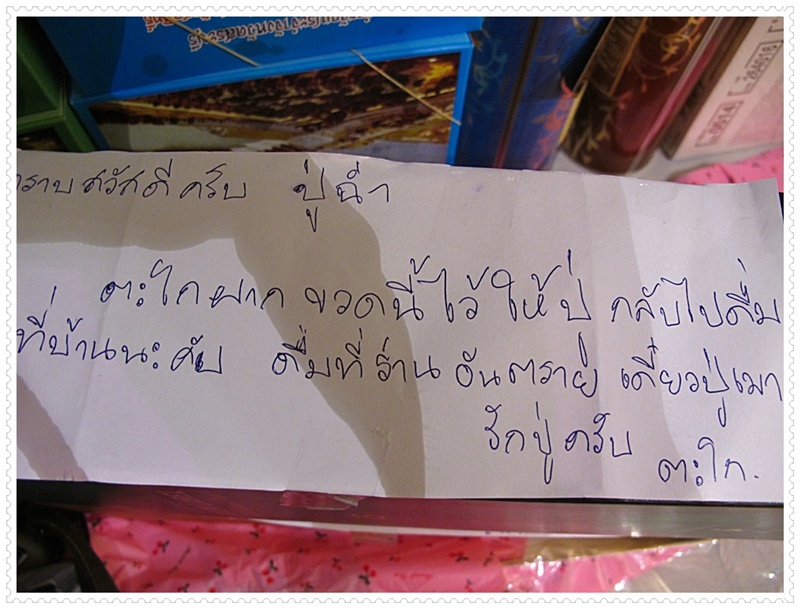 กราบสวัสดีครับ ปู่ฉ่ำ
ตะไกฝาก ขวดนี้ไว้ ให้ปู่ กลับไปดื่ม
ที่บ้านนะคับ ดื่มที่ร้าน อันตราย เดี๋ยวปู่เมา
รักปู่ครับ
ตะไก.
264018
0614